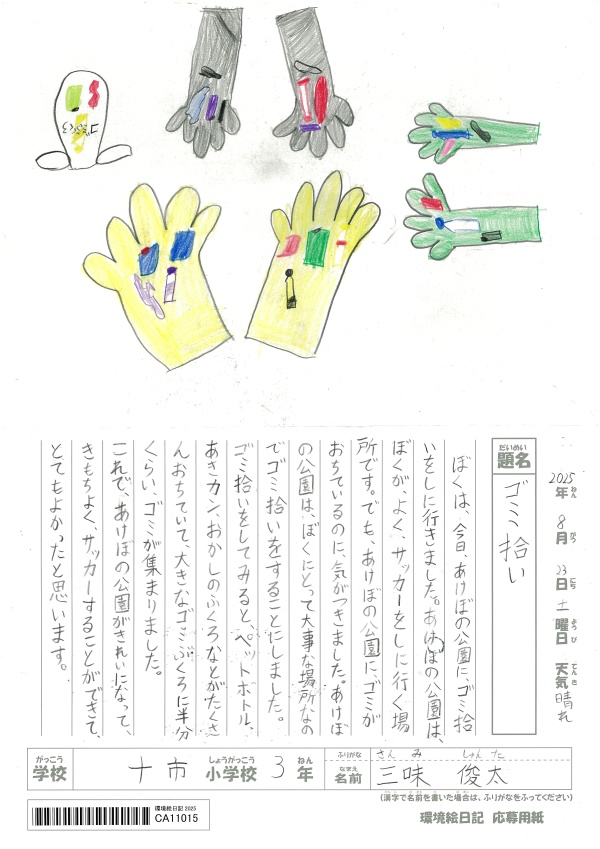 ゴミぶくろ
2025年 8月 23日 土曜日 天気 晴れ
ねん がつ にち ようび てんき
だいめい
題名
ゴミ拾い
ぼくは、今日、あけぼの公園に、ゴミ拾
いをしに行きました。あけぼの公園は、
ぼくが、よく、サッカーをしに行く場
所です。でも、あけぼの公園に、ゴミが
おちているのに、気がつきました。あけぼ
の公園は、ぼくにとって大事な場所なの
でゴミ拾いをすることにしました。
ゴミ拾いをしてみると、ペットボトル、
あきカン、おかしのふくろなどがたくさ
んおちていて、大きなゴミぶくろに半分
くらい、ゴミが集まりました。
これで、あけぼの公園がきれいになって、
きもちよく、サッカーすることができて、
とてもよかったと思います。
がっこう しょうがっこう ねん ふりがな さん み しゅん た
学校 十市 小学校 3年 なまえ 名前 三味 俊太
(漢字で名前を書いた場合は、ふりがなをふってください)
環境絵日記 2025
CA11015
環境絵日記 応募用紙